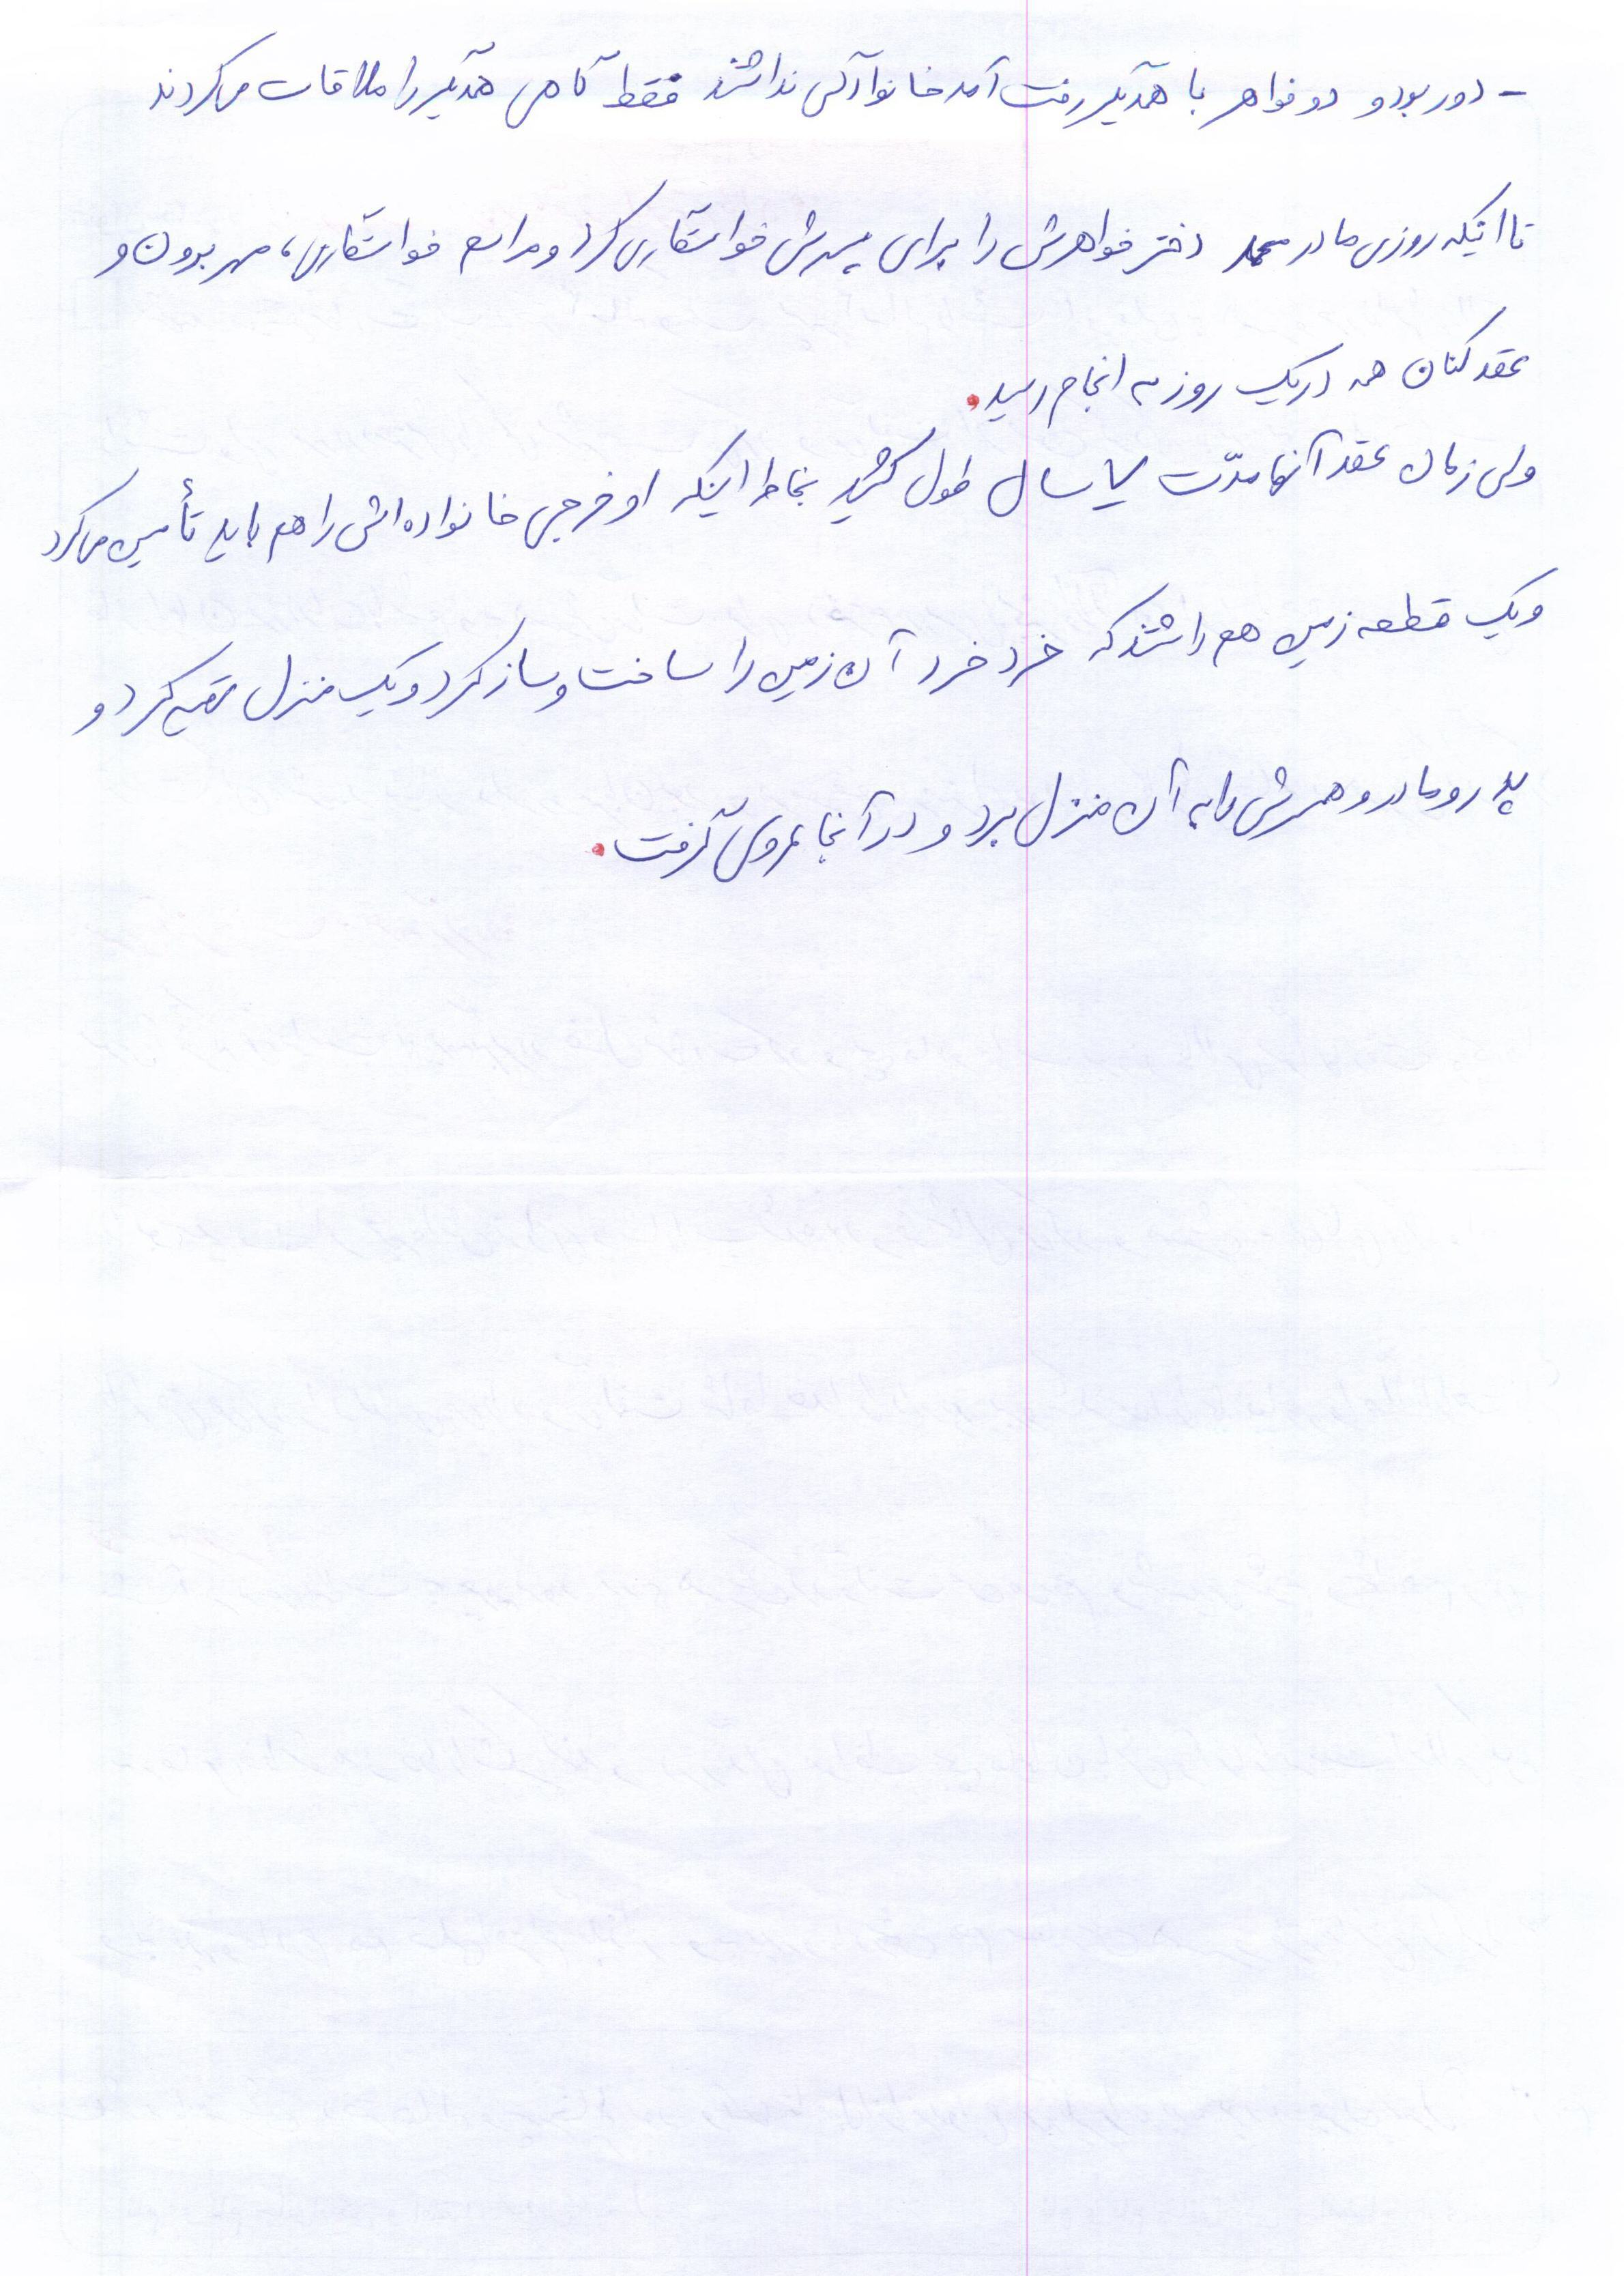 - دور بود و دو خواهر با همدیگر رفت آمد خانوادگی نداشتند فقط گاهی همدیگر را ملاقات می‌کردند
تا اینکه روزی مادر محمد دختر خواهرش را برای پسرش خواستگاری کرد و مراسم خواستگاری، مهر برون و
عقد کنان همه در یک روز به انجام رسید.
ولی زمان عقد آنها مدّت ۷ سال طول کشید بخاطر اینکه او خرجی خانواده اش را هم باید تأمین می‌کرد
و یک قطعه زمین هم داشتند که خرد خرد آن زمین را ساخت و ساز کرد و یک منزل تهیه کرد و
پدر و مادر و همسرش را به آن منزل برد و در آنجا عروسی گرفت.